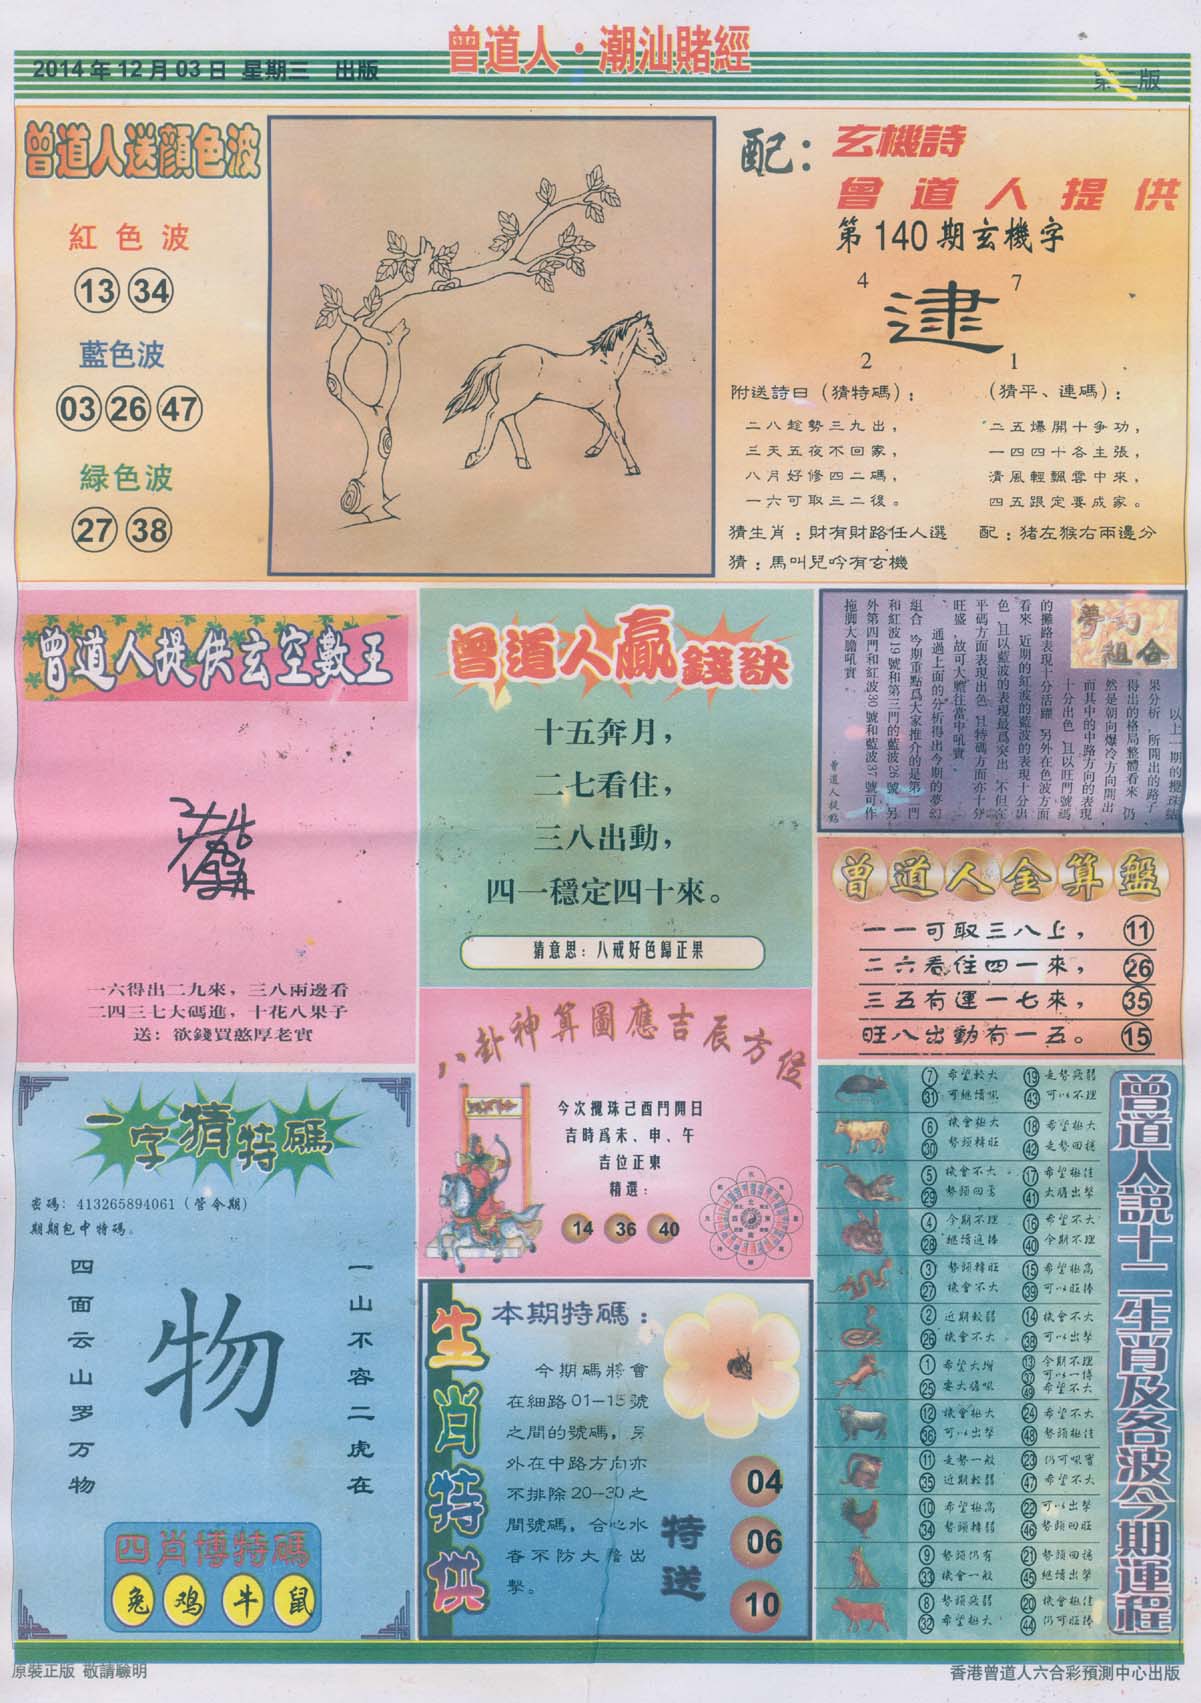 曾道人·潮汕賭經
2014年12月03日 星期三 出版
第二版
曾道人送顔色波
紅色波
13 34
藍色波
03 26 47
緑色波
27 38
配：玄機詩
曾道人提供
第140期玄機字
4 7
逮
2 1
附送詩曰（猜特碼）：
二八趁勢三九出，
三天五夜不回家，
八月好修四二碼，
一六可取三二後。
（猜平、連碼）：
二五爆開十爭功，
一四四十各主張，
清風輕飄雲中來，
四五跟定要成家。
猜生肖：財有財路任人選 配：猪左猴右兩邊分
猜：馬叫兒吟有玄機
曾道人提供玄空數王
一六得出二九來，三八兩邊看
二四三七大碼進，十花八果子
送：欲錢買憨厚老實
曾道人贏錢訣
十五奔月，
二七看住，
三八出動，
四一穩定四十來。
猜意思：八戒好色歸正果
夢幻組合
以上一期的攪珠結
果分析，所開出的路子
得出的格局整體看來，仍
然是朝向爆冷方向開出，
而其中的中路方向的表現
十分出色，且以旺門號碼
的攤路表現十分活躍，另外在色波方面
看來，近期的紅波的藍波的表現十分出
色，且以藍波的表現最爲突出，不但在
平碼方面表現出色，且特碼方面亦十分
旺盛，故可大膽往當中吼實。
通過上面的分析得出今期的夢幻
組合，今期重點爲大家推介的是第二門
和紅波19號和第三門的藍波26號，另
外第四門和紅波30號和藍波37號可作
拖脚大膽吼實。
曾道人提點
曾道人金算盤
一一可取三八上， 11
二六看住四一來， 26
三五有運一七來， 35
旺八出動有一五。 15
八卦神算圖應吉辰方位
今次攪珠己酉門開日
吉時爲未、申、午
吉位正東
精選：
14 36 40
一字猜特碼
密碼：413265894061（管令期）
期期包中特碼。
四面云山罗万物
物
一山不容二虎在
四肖博特碼
兔 鸡 牛 鼠
生肖特供
本期特碼：
今期碼將會
在細路01—15號
之間的號碼，另
外在中路方向亦
不排除20—30之
間號碼，合心水
者不防大膽出
擊。
特送
04
06
10
曾道人説十二生肖及各波今期運程
7 希望較大 19 走勢疲弱
31 可繼續吼 43 可以不理
6 機會極大 18 希望極大
30 勢頭轉旺 42 走勢回穩
5 機會不大 17 希望極佳
29 勢頭回落 41 大膽出擊
4 今期不理 16 希望不大
28 繼續追捧 40 今期不理
3 勢頭轉旺 15 希望極高
27 機會不大 39 可以旺捧
2 近期較弱 14 機會不大
26 機會不大 38 可以出擊
1 希望大增 13 今期不理
37 可以一博
25 要大膽吼 49 希望不大
12 機會極大 24 希望不大
36 可以出擊 48 勢頭極佳
11 走勢一般 23 仍可吼實
35 近期較弱 47 希望不大
10 希望極高 22 可以出擊
34 勢頭轉弱 46 勢頭回旺
9 勢頭仍有 21 勢頭回穩
33 機會一般 45 繼續出擊
8 勢頭疲弱 20 機會極佳
32 希望極大 44 仍可旺捧
原裝正版 敬請驗明
香港曾道人六合彩預測中心出版